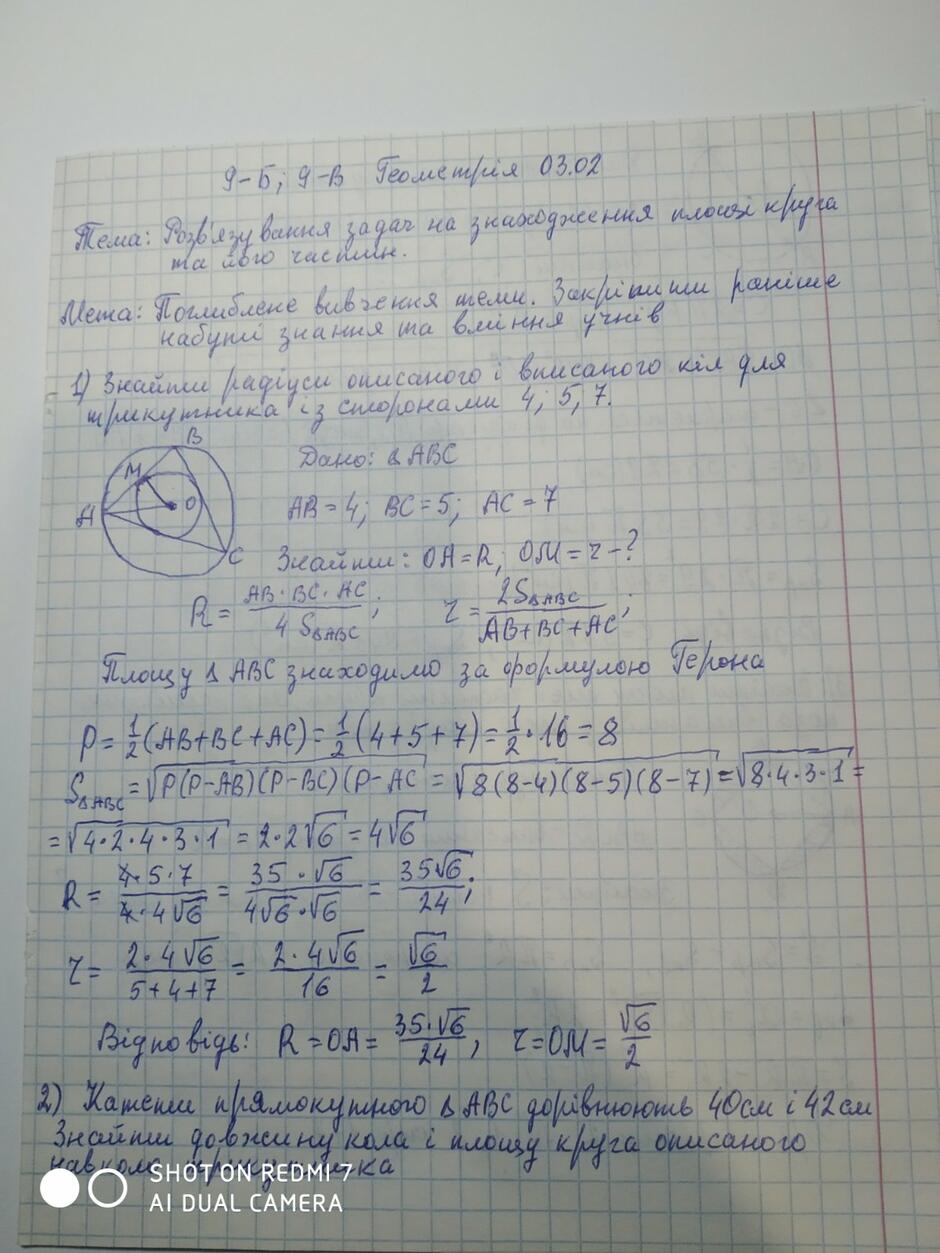 9-Б; 9-В Геометрія 03.02
Тема: Розв'язування задач на знаходження площі круга
та його частин.
Мета: Поглиблене вивчення теми. Закріпити раніше
набуті знання та вміння учнів
1) Знайти радіуси описаного і вписаного кіл для
трикутника із сторонами 4; 5; 7.
B
M
O
A
C
Дано: ΔABC
AB=4; BC=5; AC=7
Знайти: OA=R; OM=r-?
R = AB·BC·AC / 4 SΔABC; r = 2SΔABC / AB+BC+AC;
Площу Δ ABC знаходимо за формулою Герона
P = 1/2 (AB+BC+AC) = 1/2 (4+5+7) = 1/2 · 16 = 8
SΔABC = √P(P-AB)(P-BC)(P-AC = √8(8-4)(8-5)(8-7) = √8·4·3·1 =
= √4·2·4·3·1 = 2·2√6 = 4√6
R = 4·5·7 / 4·4√6 = 35·√6 / 4√6·√6 = 35√6 / 24;
r = 2·4√6 / 5+4+7 = 2·4√6 / 16 = √6 / 2
Відповідь: R=OA= 35·√6 / 24; r=OM= √6 / 2
2) Катети прямокутного Δ ABC дорівнюють 40см і 42см
Знайти довжину кола і площу круга описаного
навколо трикутника
SHOT ON REDMI 7
AI DUAL CAMERA